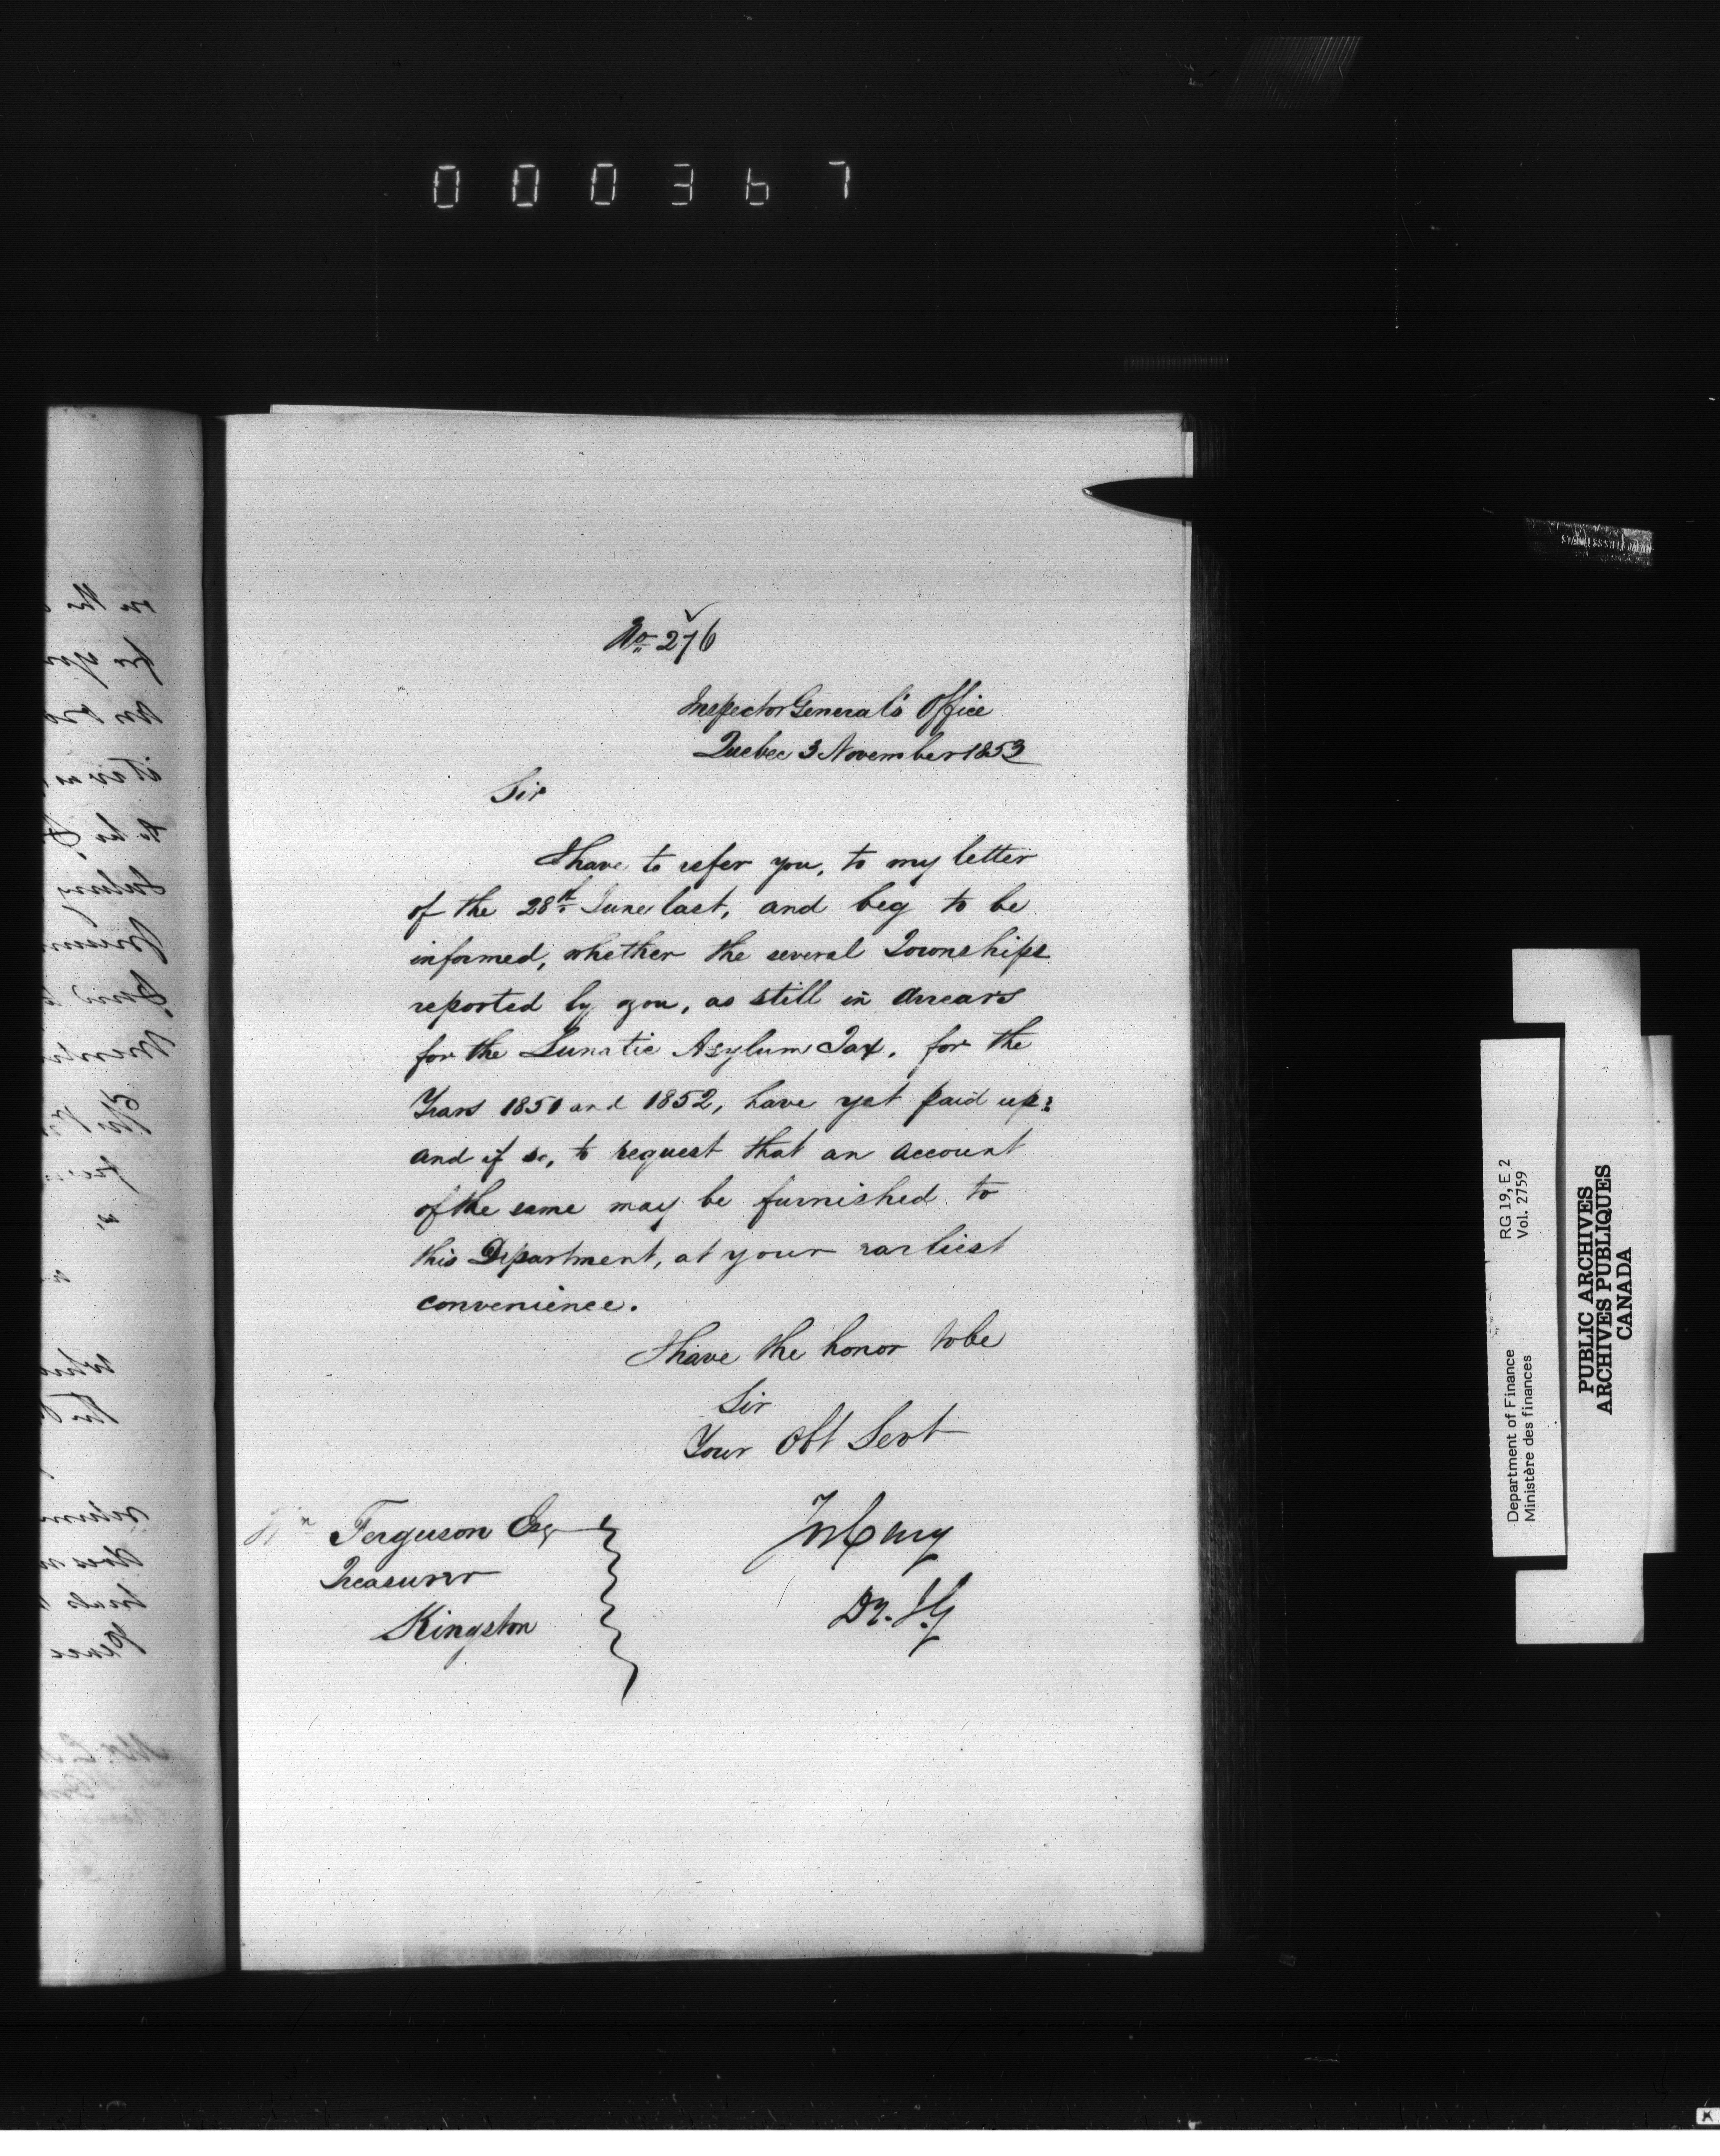 000367
No. 276
Inspector General's Office
Quebec 3 November 1853
Sir
I have to refer you, to my letter
of the 28th June last, and beg to be
informed, whether the several Townships
reported by you, as still in Arrears
for the Lunatic Asylum Tax, for the
Years 1851 and 1852, have yet paid up:
and if so, to request that an account
of the same may be furnished to
this Department, at your earliest
convenience.
I have the honor to be
Sir
Your Obt Servt
Wm Ferguson Esq
Treasurer
Kingston
Dy. I. G
STAINLESS STEEL JAPAN
Department of Finance RG 19, E 2
Ministère des finances Vol. 2759
PUBLIC ARCHIVES
ARCHIVES PUBLIQUES
CANADA